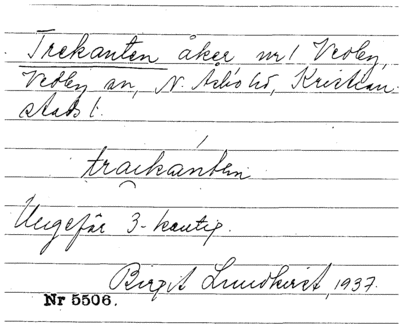 Trekanten åker nr 1 Vedby,
Vedby sn, N. Åsbo hd, Kristian-
stads l.
traikánten
Ungefär 3-kantig.
Birgit Lundkvist, 1937.
Nr 5506.